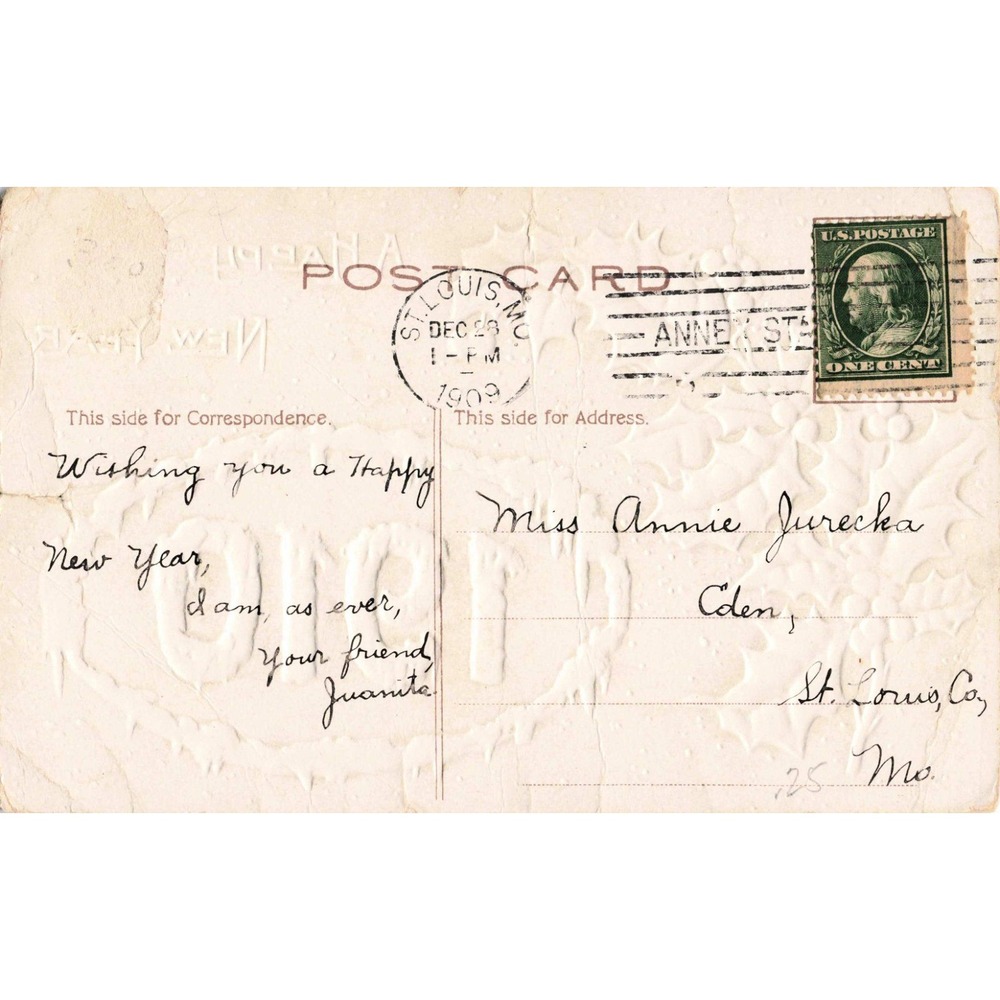 A HAPPY
NEW YEAR
1910
POST CARD
ST. LOUIS, MO.
DEC 28
1 - PM
1909
ANNEX STA
U.S. POSTAGE
ONE CENT
This side for Correspondence.
This side for Address.
Wishing you a Happy
New Year,
I am, as ever,
Your friend,
Juanita.
Miss Annie Jurecka
Eden,
St. Louis, Co,
Mo.
.25